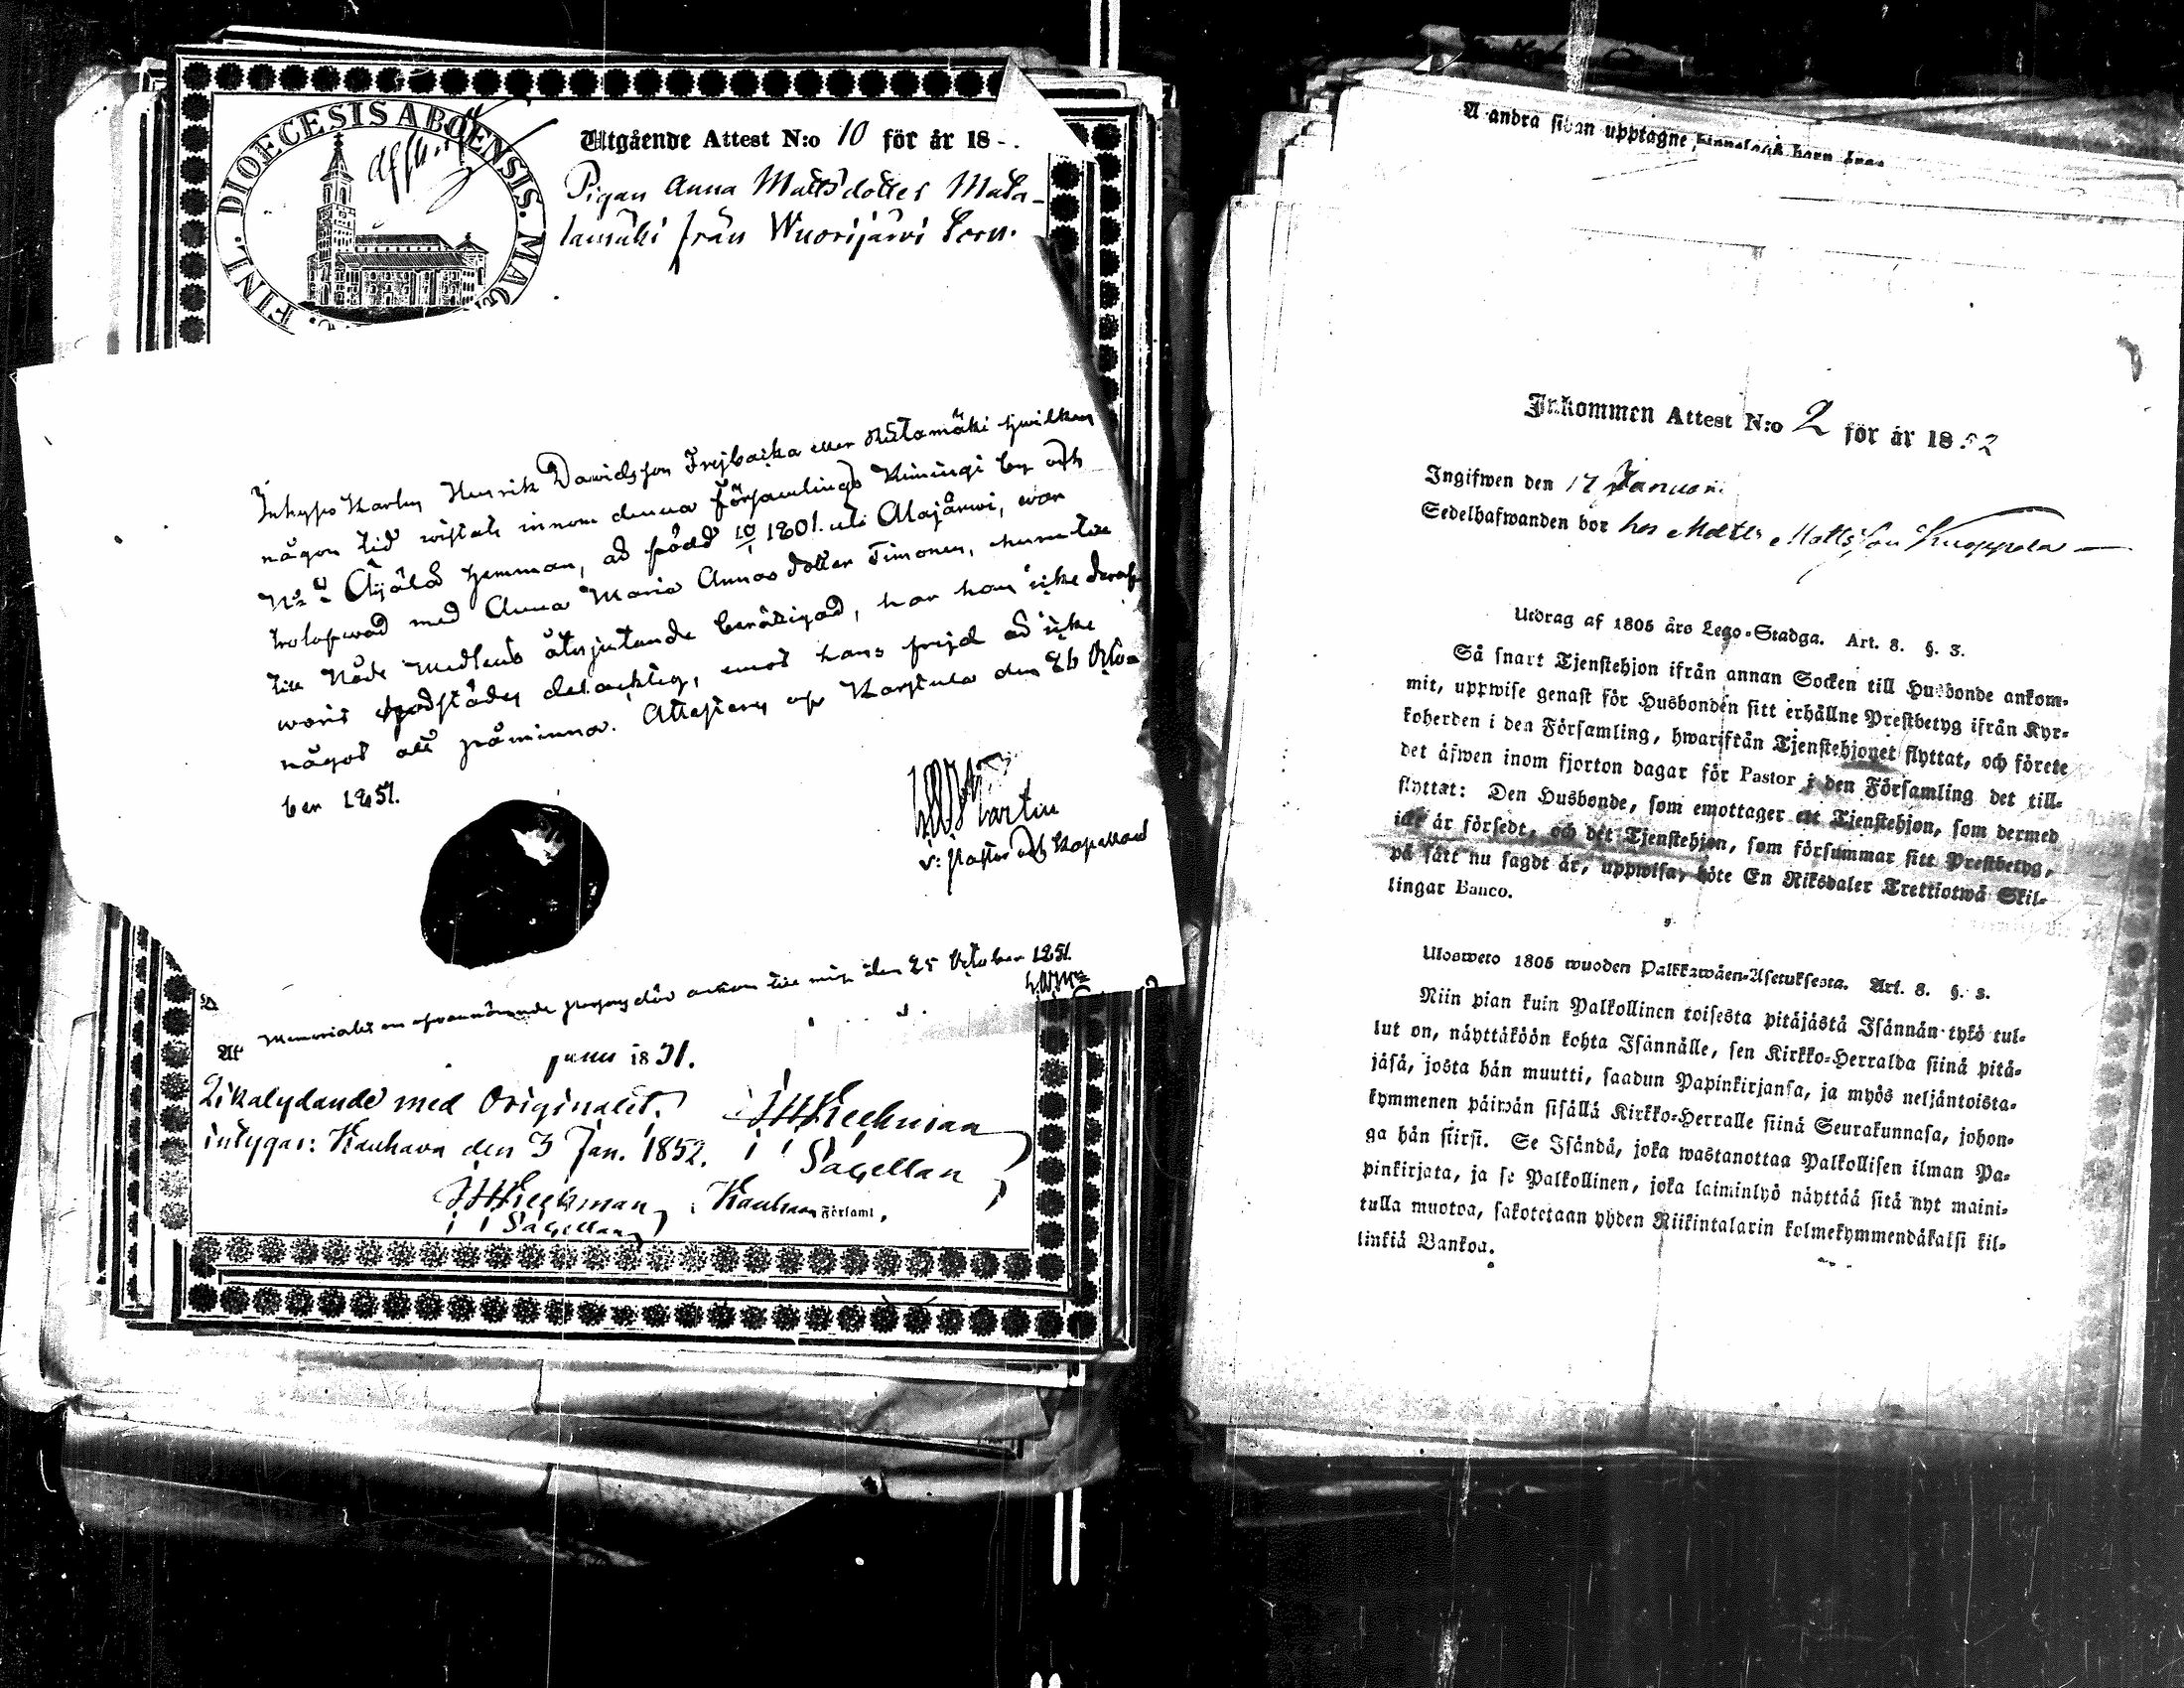 FINL. DIOECESIS ABOENSIS. MAG
Utgående Attest N:o 10 för år 18
Pigan Anna Mattsdotter Mata-
lamäki från Wuorijärvi Torn.
Inhyses Karlen Henrik Dawidsson eller hwilken
någon tid wistats innom denna Församlings Kimingi by och
hemman, är född 10 1801. uti Alajärwi, war
trolofwad med Anna Maria Annas dotter Timonen, hwum till
till Nåde Medlens åtnjutande berättigad, har han icke deraf
warit delacktig, emot hans frejd är icke
något att påminna. Attesterar af Karstula den 26 Octo-
ber 1851.
Martin
v: Pastor och Kapellan
Memorialet om ofwannämnde persons död ankom till mig den 25 October 1851.
Af
junii 1831.
Likalydande med Originalet,
intygar: Kauhava den 3 Jan. 1852.
Sacellan
Sacellan
Kauhava Församl.
A andra sidan upptagne barn
Inkommen Attest N:o 2 för år 1852
Ingifwen den 17 Januari
Sedelhafwanden bor hos Matts Mattsson
Utdrag af 1805 års Lego-Stadga. Art. 8. §. 3.
Så snart Tjenstehjon ifrån annan Socken till Husbonde ankom-
mit, uppwise genast för Husbonden sitt erhållne Prestbetyg ifrån Kyr-
koherden i den Församling, hwarifrån Tjenstehjonet flyttat, och förete
det äfwen inom fjorton dagar för Pastor i den Församling det till-
flyttat: Den Husbonde, som emottager ett Tjenstehjon, som dermed
icke är försedt, och det Tjenstehjon, som försummar sitt Prestbetyg,
på sätt nu sagdt är, uppwisa, böte En Riksdaler Trettiotwå Skil-
lingar Banco.
Ulosweto 1805 wuoden Palkkawäen-Asetuksesta. Art. 8. §. 3.
Niin pian kuin Palkollinen toisesta pitäjästä Isännän tykö tul-
lut on, näyttäköön kohta Isännälle, sen Kirkko-Herralda siinä pitä-
jäsä, josta hän muutti, saadun Papinkirjansa, ja myös neljäntoista-
kymmenen päiwän sisällä Kirkko-Herralle siinä Seurakunnasa, johon-
ga hän siirsi. Se Isändä, joka wastanottaa Palkollisen ilman Pa-
pinkirjata, ja se Palkollinen, joka laiminlyö näyttää sitä nyt maini-
tulla muotoa, sakotetaan yhden Riikintalarin kolmekymmendäkaksi kil-
linkiä Bankoa.